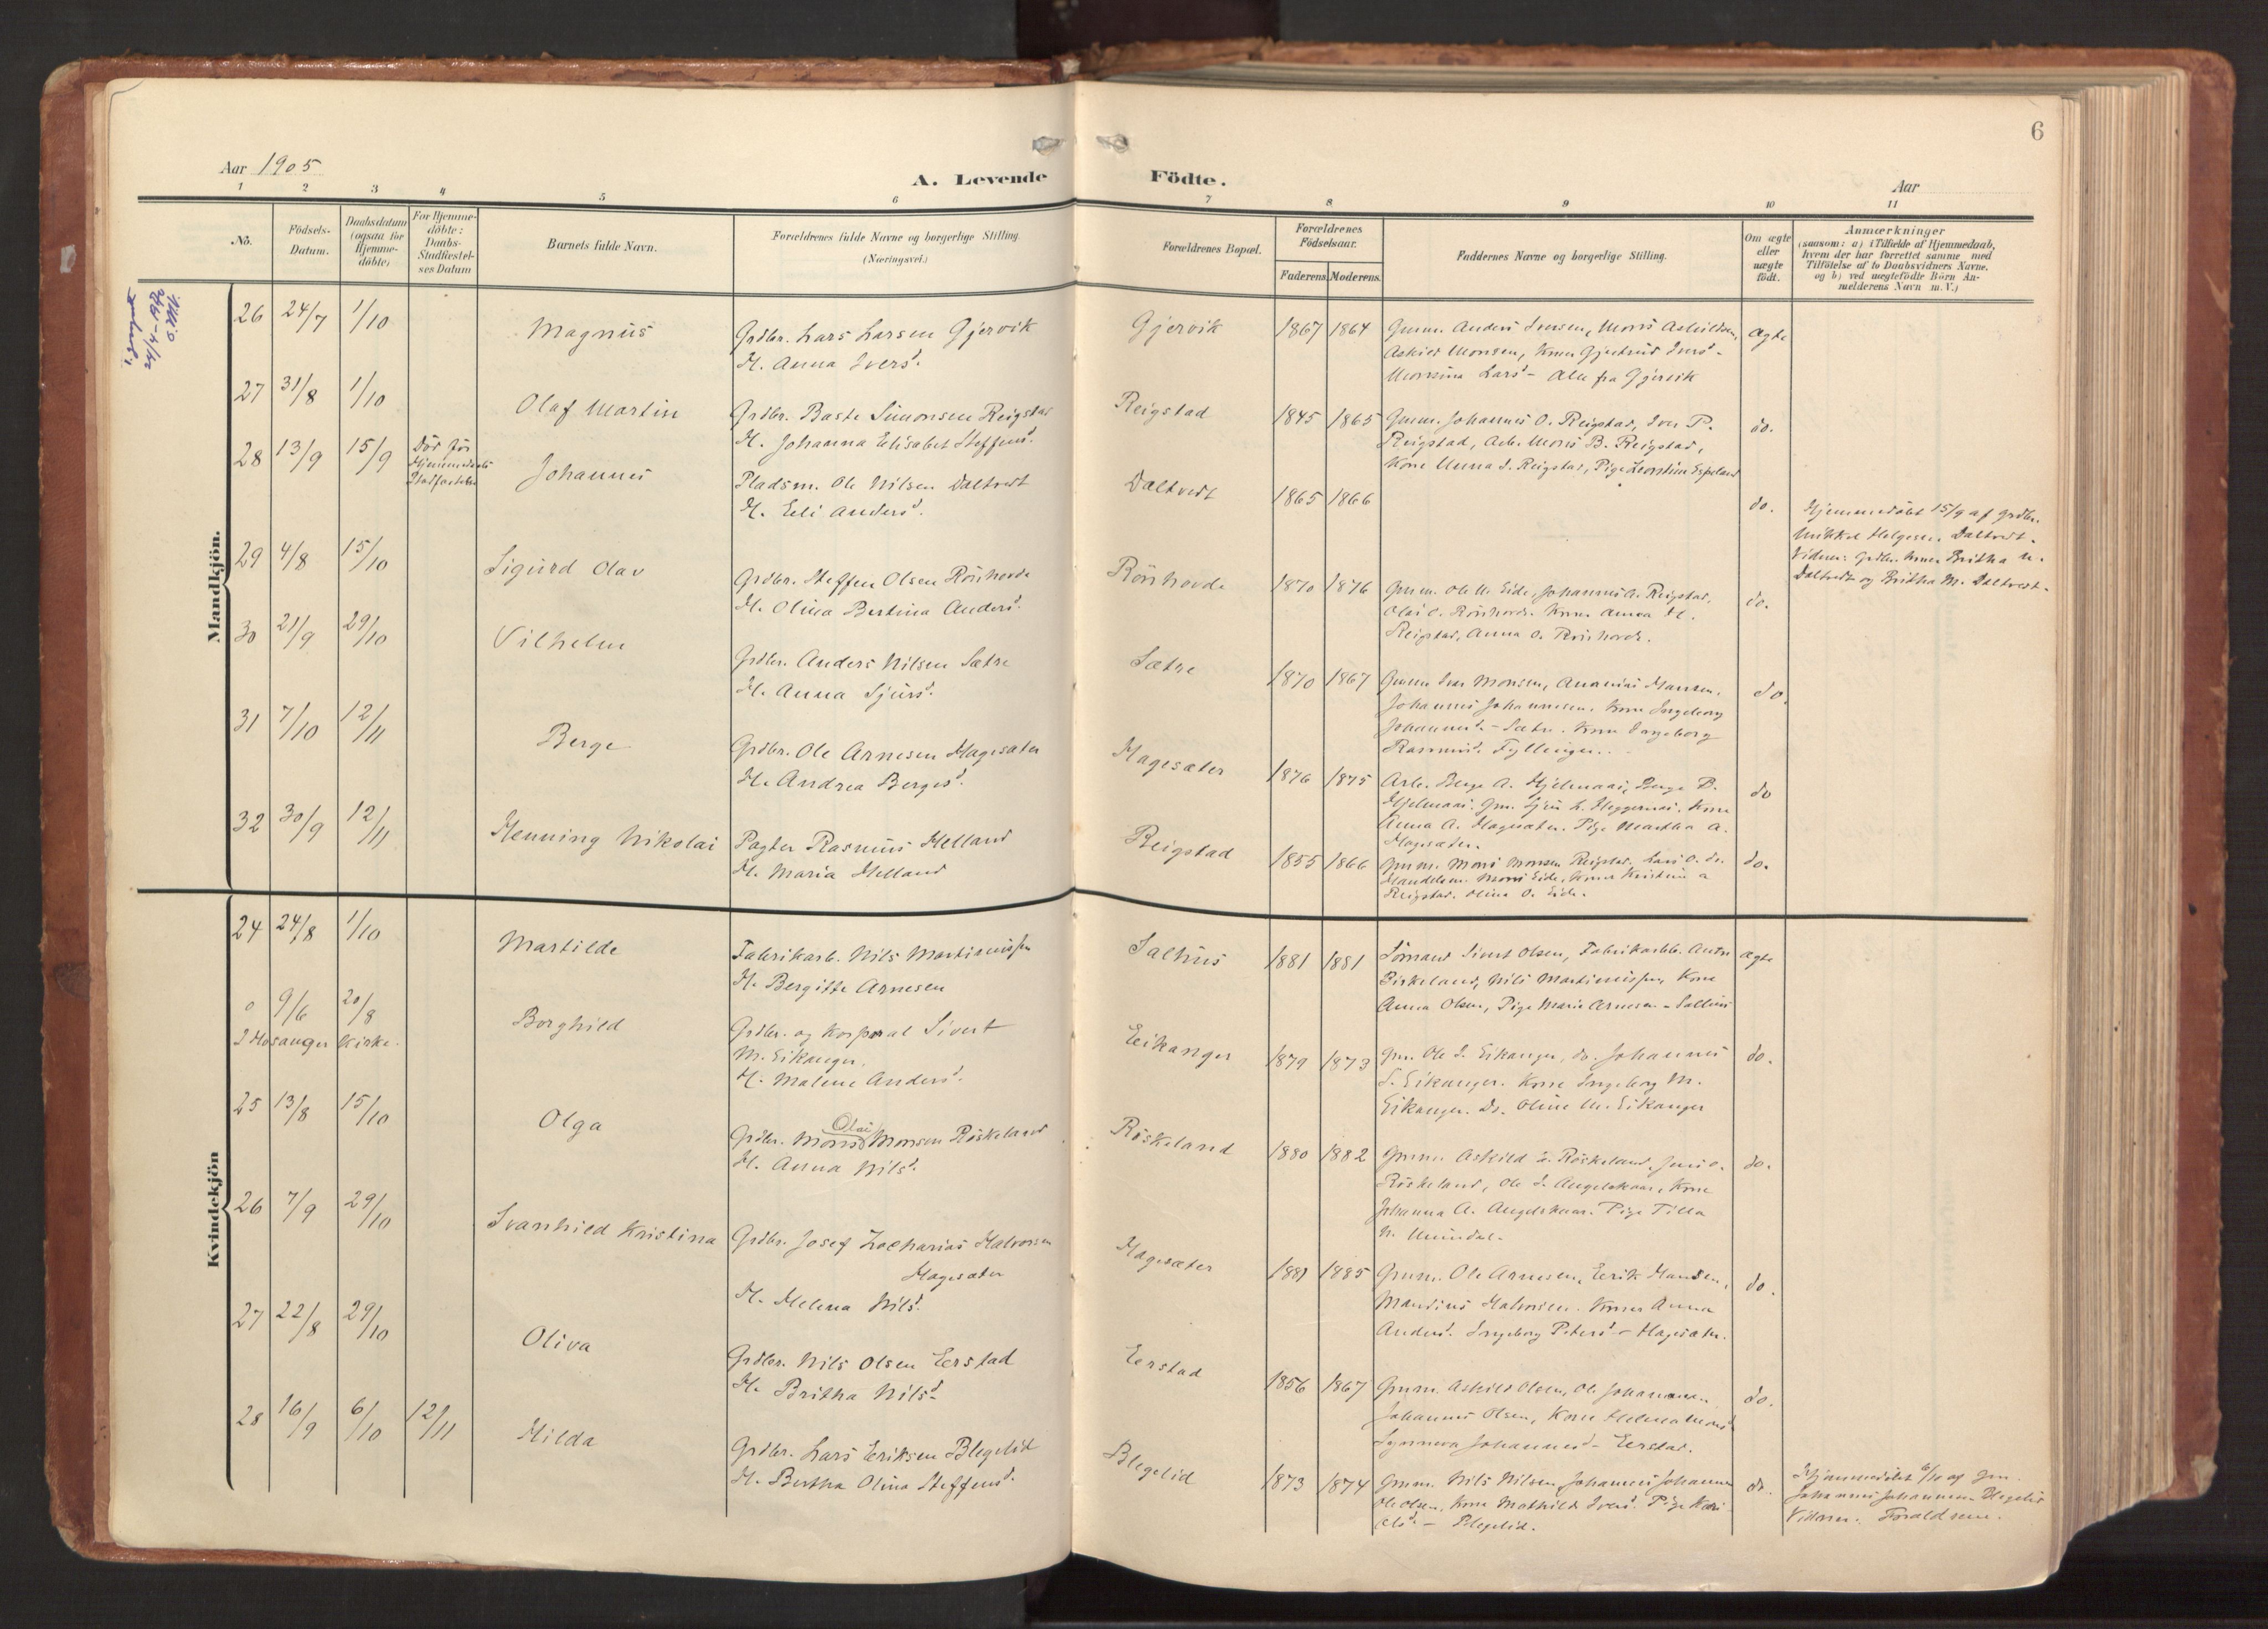 6
Aar 1905
A. Levende Födte.
Aar
1 2 3 4 5 6 7 8 9 10 11
No.
Födsels-
Datum.
Daabsdatum
(ogsaa for
Hjemme-
döbte)
For Hjemme-
döbte:
Daabs-
Stadfæstel-
ses Datum
Barnets fulde Navn.
Forældrenes fulde Navne og borgerlige Stilling.
(Næringsvei.)
Forældrenes Bopæl.
Forældrenes
Födselsaar.
Faderens. Moderens.
Faddernes Navne og borgerlige Stilling.
Om ægte
eller
uægte
födt.
Anmærkninger
(saasom: a) i Tilfælde af Hjemmedaab,
hvem der har forrettet samme med
Tilföielse af to Daabsvidners Navne,
og b) ved uægtefödte Börn An-
melderens Navn m. V.)
24/4-1942
Mandkjön.
26 24/7 1/10 Magnus
Grdbr. Lars Larsen Gjervik
H. Anna Iversd.
Gjervik 1867 1864
Gmm. Anders Iversen, Mons Askildsen,
Askild Monsen, Koner Gjertrud Iversd-
Monsina Larsd- Alle fra Gjervik
ægte
27 31/8 1/10 Olaf Martin
Grdbr. Baste Simonsen Reigstad
H. Johanna Elisabet Steffensd.
Reigstad 1845 1865
Gmm. Johannes O. Reigstad, Iver P.
Reigstad, Arb. Mons B. Reigstad,
Kone Unna S. Reigstad, Pige
do.
28 13/9 15/9 Död før
Johannes
Pladsm. Ole Nilsen Daltvedt
H. Eli Andersd.
Daltvedt 1865 1866
do.
Hjemmedöbt 15/9 af grdbr.
Mikkel Helgesen Daltvedt.
Vidner: Grdbr. koner Britha N.
Daltvedt og Britha M. Daltvedt.
29 4/8 15/10 Sigurd Olav
Grdbr. Steffen Olsen Rönhovde
H. Olina Bertina Andersd.
Rönhovde 1870 1876
Gmm. Ole M. Eide, Johannes A. Reigstad,
Olai O. Rönhovde. Kone Anna H.
Reigstad, Anna O. Rönhovde.
do.
30 21/9 29/10 Vilhelm
Grdbr. Anders Nilsen Sætre
H. Anna Sjursd.
Sætre 1870 1867
Gmm Iver Monsen, Ananias Hansen,
Johannes Johannesen, Kone Ingeborg
Johannesd. - Sætre. Kone Ingeborg
Rasmusd. Fyllingen.
do.
31 7/10 12/11 Berge
Grdbr. Ole Arnesen Hagesæter
H. Andrea Bergesd.
Hagesæter 1876 1875
Arb. Berge A. Hjelmaas, Berge B.
Hjelmaas. Gm. Sjur L. Heggernes. Kone
Anna A. Hagesæter. Pige Martha A.
Hagesæter.
do
32 30/9 12/11 Henning Nikolai
Pagter Rasmus Helland
H. Maria Helland
Reigstad 1855 1866
Gmm. Mons Monsen Reigstad, Lars O. do.
Handelsm. Mons Eide, Koner Kristine A
Reigstad. Olina O. Eide.
do.
Kvindekjön
24 24/8 1/10 Martilde
Fabrikarb. Nils Martinussen
H. Bergitte Arnesen
Salhus 1881 1881
Sömand Sivert Olsen, Fabrikarbb. Andr
Birkeland, Nils Martinussen, Kone
Anna Olsen, Pige Marie Arnesen - Salhus
ægte
0 9/6 20/8
I Hosanger Kirke.
Borghild
Grdbr. og Korporal Sivert
M. Eikanger,
H. Malene Andersd.
Eikanger 1879 1873
Gm. Ole S. Eikanger, do. Johannes
S. Eikanger. Kone Ingeborg M.
Eikanger. Do. Oline M. Eikanger
do.
25 13/8 15/10 Olga
Olai
Grdbr. Mons Monsen Röskeland
H. Anna Nilsd.
Röskeland 1880 1882
Gmm. Askild A. Röskeland, Jens O.
Röskeland, Ole S. Angelskaar, Kone
Johanna A. Angelskaar. Pige Tilla
N. Mundal.
do.
26 7/9 29/10 Svanhild Kristina
Grdbr. Josef Zacharias Halvorsen
Hagesæter
H. Helena Nilsd.
Hagesæter 1881 1885
Gmm. Ole Arnesen, Eerik Hansen,
Mandius Halvorsen. Koner Anna
Andersd. Ingeborg Petersd - Hagesæter.
do.
27 22/8 29/10 Oliva
Grdbr. Nils Olsen Eerstad
H. Britha Nilsd-
Eerstad 1856 1867
Gmm. Askild Olsen, Ole Johannesen
Johannes Olsen, Kone Helena Monsd
Synneva Johannesd - Eerstad.
do.
28 16/9 6/10 12/11 Hilda
Grdbr. Lars Eriksen Blegelid
H. Bertha Olina Steffensd.
Blegelid 1873 1874
Gmm. Nils Nilsen, Johannes Johannes
Ole Olsen, Kone Mathilde Iversd. Pige Kari
Olsd. - Blegelid.
do.
Hjemmedöbt 6/10 af Gm.
Johannes Johannesen Blegelid
Vidner: Forældrene.